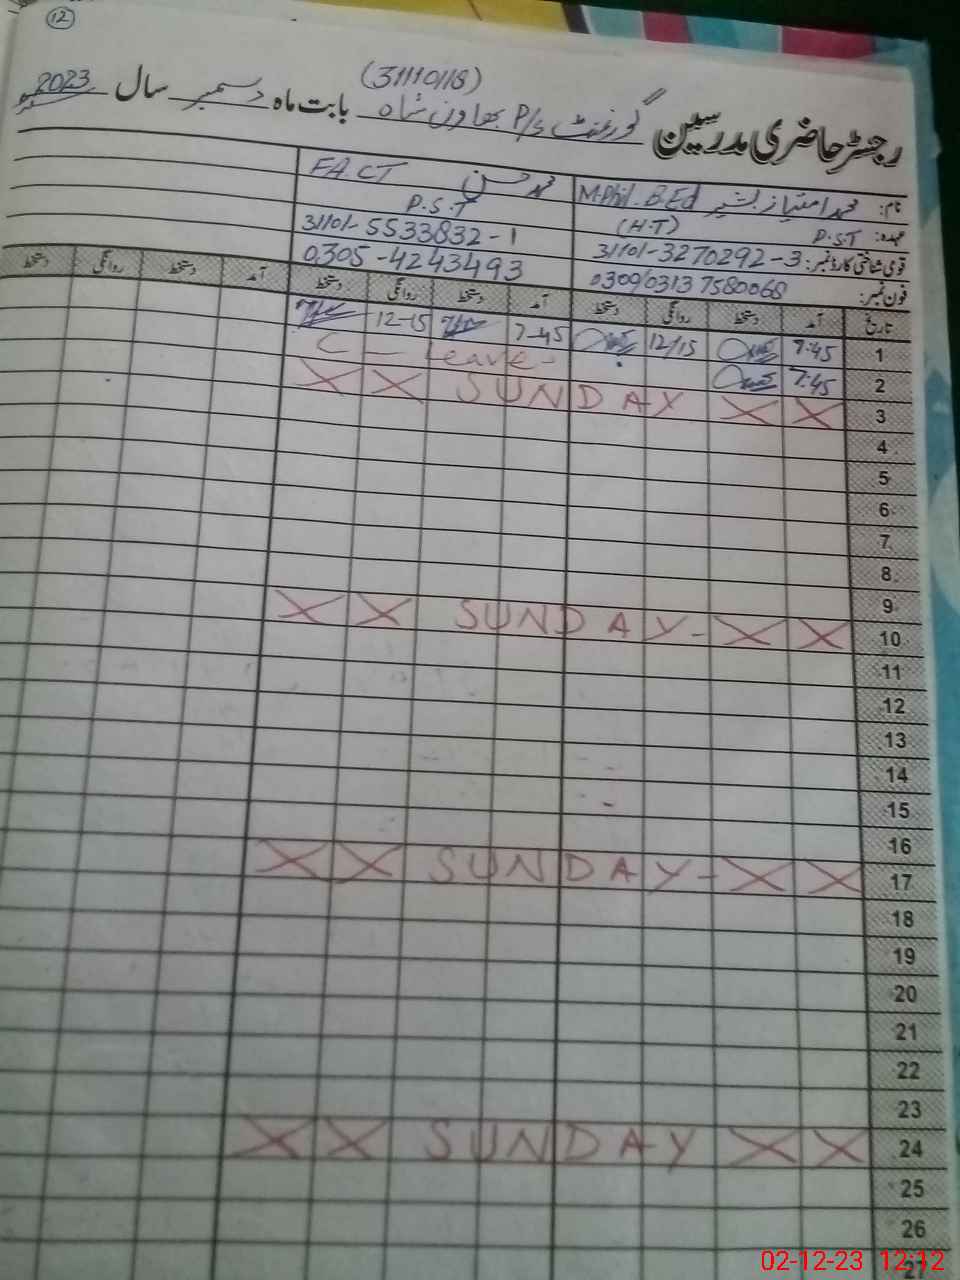 12
(31110118)
رجسٹر حاضری مدرسین گورنمنٹ P/S بھاون شاہ بابت ماہ دسمبر سال 2023
نام: محمد امتیاز بشیر M.Phil. B.Ed محمد حسن FA.CT
عہدہ: P.S.T (H.T) P.S.T
قومی شناختی کارڈ نمبر: 31101-3270292-3 31101-5533832-1
فون نمبر: 0300/0313 7580068 0305-4243493
تاریخ آمد دستخط روانگی دستخط آمد دستخط روانگی دستخط آمد دستخط روانگی دستخط
1 7:45 12/15 7-45 12-15
2 7:45 C - Leave -
3 X X SUNDAY X X
4
5
6
7
8
9
10 X X SUNDAY - X X
11
12
13
14
15
16
17 X X SUNDAY - X X
18
19
20
21
22
23
24 X X SUNDAY X X
25
26
27
02-12-23 12:12